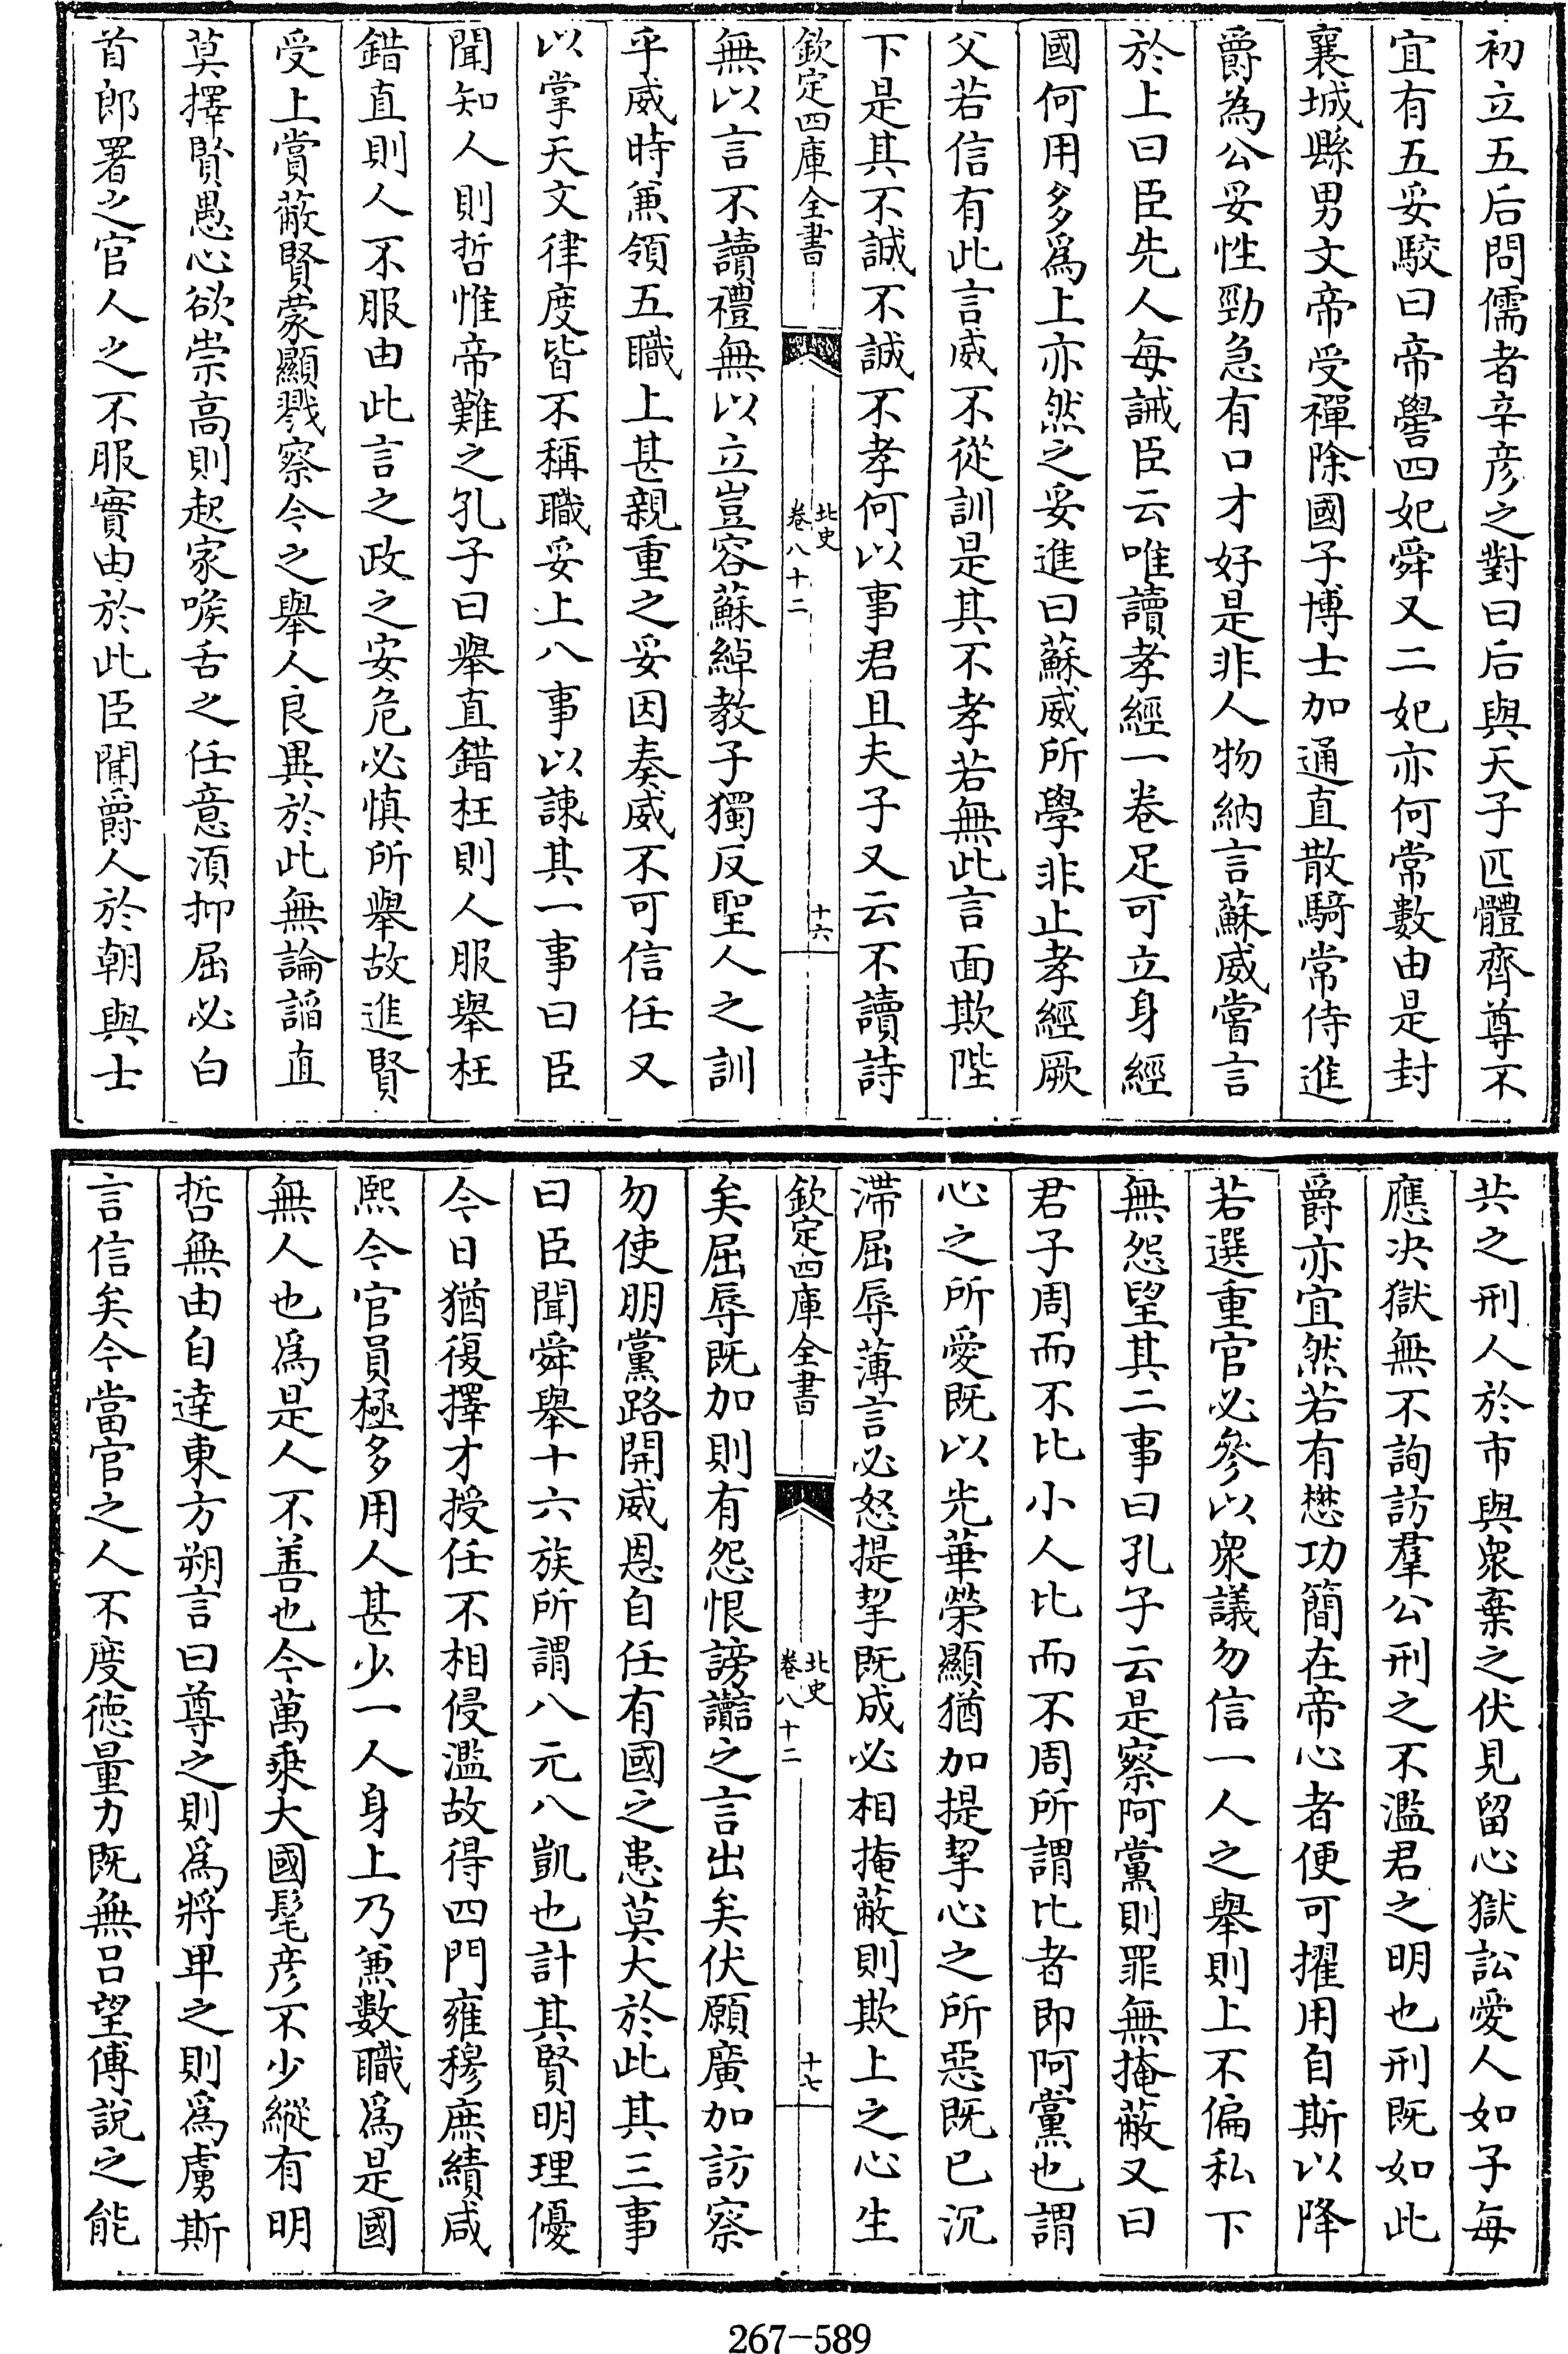 初立五后問儒者辛彦之對曰后與天子匹體齊尊不
宜有五妥駮曰帝嚳四妃舜又二妃亦何常數由是封
襄城縣男文帝受禪除國子博士加通直散騎常侍進
爵為公妥性勁急有口才好是非人物納言蘇威嘗言
於上曰臣先人每誡臣云唯讀孝經一卷足可立身經
國何用多爲上亦然之妥進曰蘇威所學非止孝經厥
父若信有此言威不從訓是其不孝若無此言面欺陛
下是其不誠不誠不孝何以事君且夫子又云不讀詩
欽定四庫全書
北史
卷八十二
十六
無以言不讀禮無以立豈容蘇綽教子獨反聖人之訓
乎威時兼領五職上甚親重之妥因奏威不可信任又
以掌天文律度皆不稱職妥上八事以諫其一事曰臣
聞知人則哲惟帝難之孔子曰舉直錯枉則人服舉枉
錯直則人不服由此言之政之安危必慎所舉故進賢
受上賞蔽賢蒙顯戮察今之舉人良異於此無論諂直
莫擇賢愚心欲崇高則起家喉舌之任意須抑屈必白
首郎署之官人之不服實由於此臣聞爵人於朝與士
共之刑人於市與衆棄之伏見留心獄訟愛人如子每
應决獄無不詢訪羣公刑之不濫君之明也刑既如此
爵亦宜然若有懋功簡在帝心者便可擢用自斯以降
若選重官必參以衆議勿信一人之舉則上不偏私下
無怨望其二事曰孔子云是察阿黨則罪無掩蔽又曰
君子周而不比小人比而不周所謂比者即阿黨也謂
心之所愛既以光華榮顯猶加提挈心之所惡既已沉
滯屈辱薄言必怒提挈既成必相掩蔽則欺上之心生
欽定四庫全書
北史
卷八十二
十七
矣屈辱既加則有怨恨謗讟之言出矣伏願廣加訪察
勿使朋黨路開威恩自任有國之患莫大於此其三事
曰臣聞舜舉十六族所謂八元八凱也計其賢明理優
今日猶復擇才授任不相侵濫故得四門雍穆庶績咸
熙今官員極多用人甚少一人身上乃兼數職爲是國
無人也爲是人不善也今萬乗大國髦彦不少縱有明
哲無由自達東方朔言曰尊之則爲將卑之則爲虜斯
言信矣今當官之人不度德量力既無吕望傅說之能
267-589